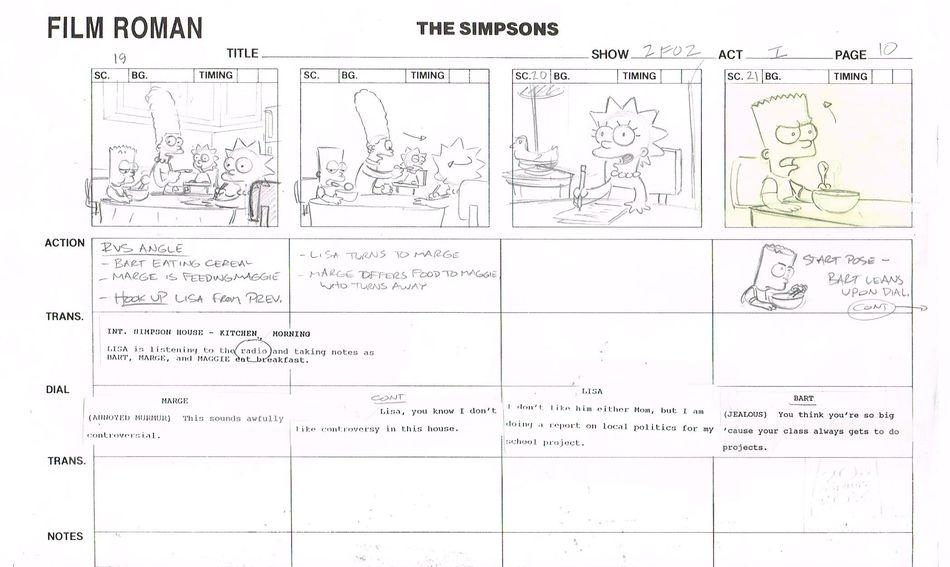 FILM ROMAN
THE SIMPSONS
TITLE SHOW 2F02 ACT I PAGE 10
19
SC. BG. TIMING
SC. BG. TIMING
SC. 20 BG. TIMING
SC. 21 BG. TIMING
ACTION
RVS ANGLE
- BART EATING CEREAL
- MARGE IS FEEDING MAGGIE
- HOOK UP LISA FROM PREV.
- LISA TURNS TO MARGE
- MARGE OFFERS FOOD TO MAGGIE
WHO TURNS AWAY
START POSE -
BART LEANS
UPON DIAL.
CONT
TRANS.
INT. SIMPSON HOUSE - KITCHEN, MORNING
LISA is listening to the radio and taking notes as
BART, MARGE, and MAGGIE eat breakfast.
DIAL
MARGE
(ANNOYED MURMUR) This sounds awfully
controversial.
CONT
Lisa, you know I don't
like controversy in this house.
LISA
I don't like him either Mom, but I am
doing a report on local politics for my
school project.
BART
(JEALOUS) You think you're so big
'cause your class always gets to do
projects.
TRANS.
NOTES